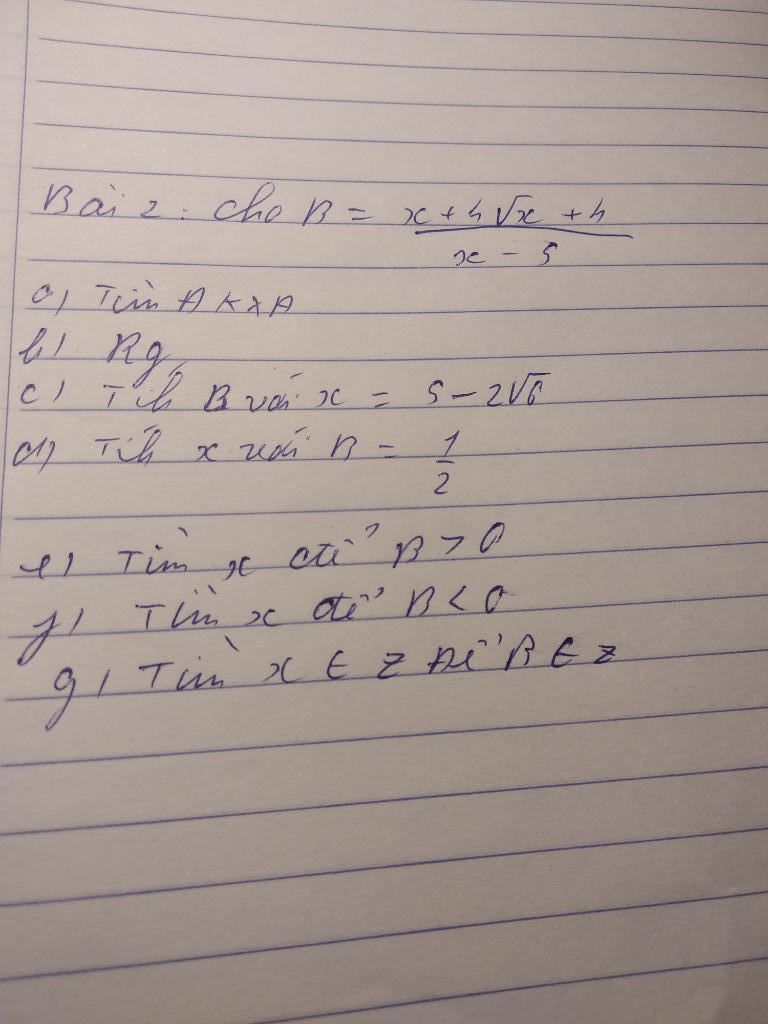 Bài 2: Cho B = x + 4√x + 4 / x - 5
a) Tìm ĐKXĐ
b) Rg
c) Tíh B với x = 5 - 2√6
d) Tíh x với B = 1/2
e) Tìm x để B > 0
f) Tìm x để B < 0
g) Tìm x ∈ Z Để B ∈ Z